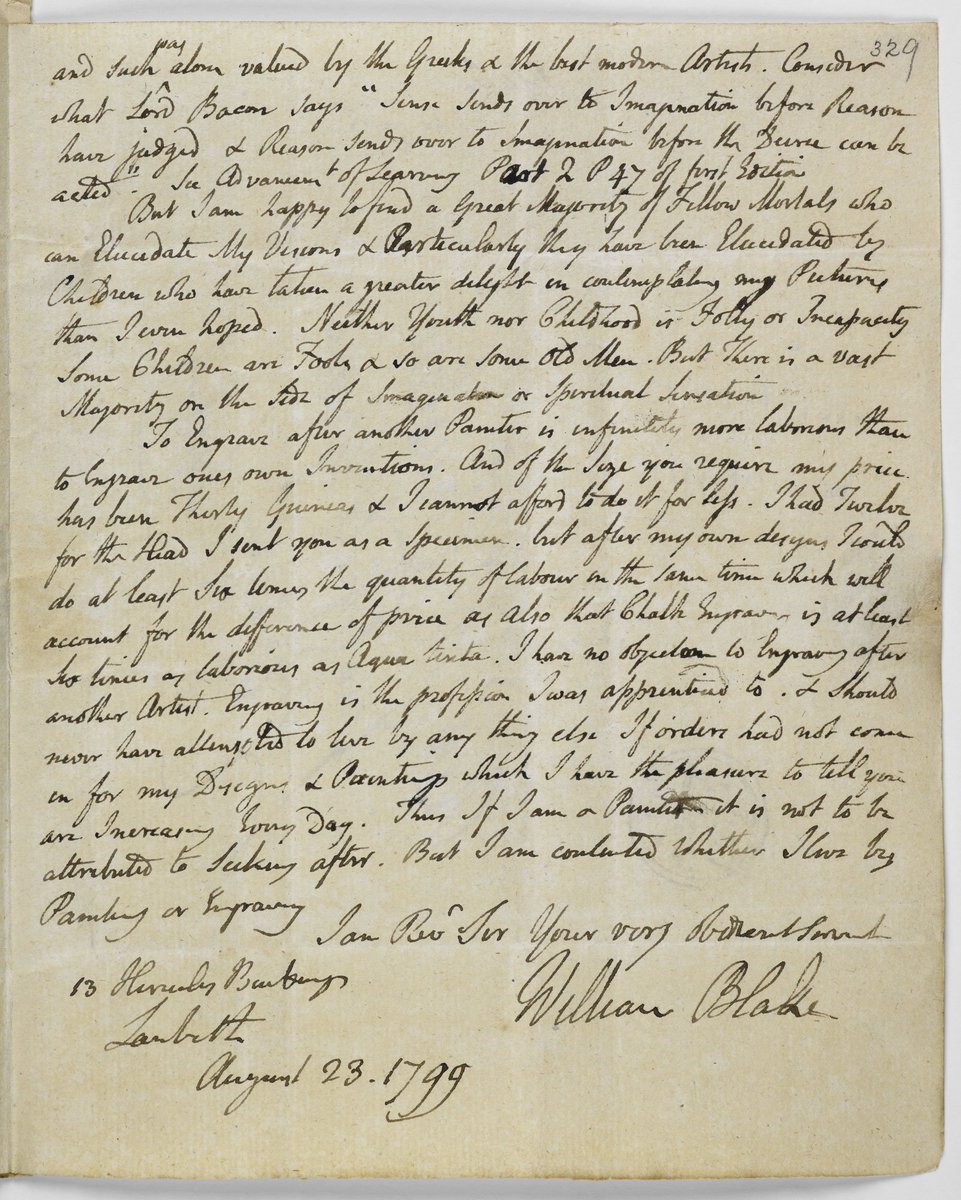 329
and such was alone valued by the Greeks & the best modern Artists. Consider
what Lord Bacon says "Sense sends over to Imagination before Reason
have judged & Reason sends over to Imagination before the Decree can be
acted". See Advancemt of Learning Part 2 P 47 of first Edition
But I am happy to find a Great Majority of Fellow Mortals who
can Elucidate My Visions & Particularly they have been Elucidated by
Children who have taken a greater delight in contemplating my Pictures
than I even hoped. Neither Youth nor Childhood is Folly or Incapacity
Some Children are Fools & so are some Old Men. But There is a vast
Majority on the side of Imagination or Spiritual Sensation
To Engrave after another Painter is infinitely more laborious than
to Engrave ones own Inventions. And of the Size you require my price
has been Thirty Guineas & I cannot afford to do it for less. I had Twelve
for the Head I sent you as a Specimen. but after my own designs I could
do at least Six times the quantity of labour in the same time which will
account for the difference of price as also that Chalk Engraving is at least
Six times as laborious as Aqua tinta. I have no objection to Engraving after
another Artist. Engraving is the profession I was apprenticed to. & Should
never have attempted to live by any thing else If orders had not come
in for my Designs & Paintings which I have the pleasure to tell you
are Increasing Every Day. Thus If I am a Painter it is not to be
attributed to Seeking after. But I am contented whether I live by
Painting or Engraving
I am Revd Sir Your very Obedient Servant
William Blake
13 Hercules Buildings
Lambeth
August 23. 1799